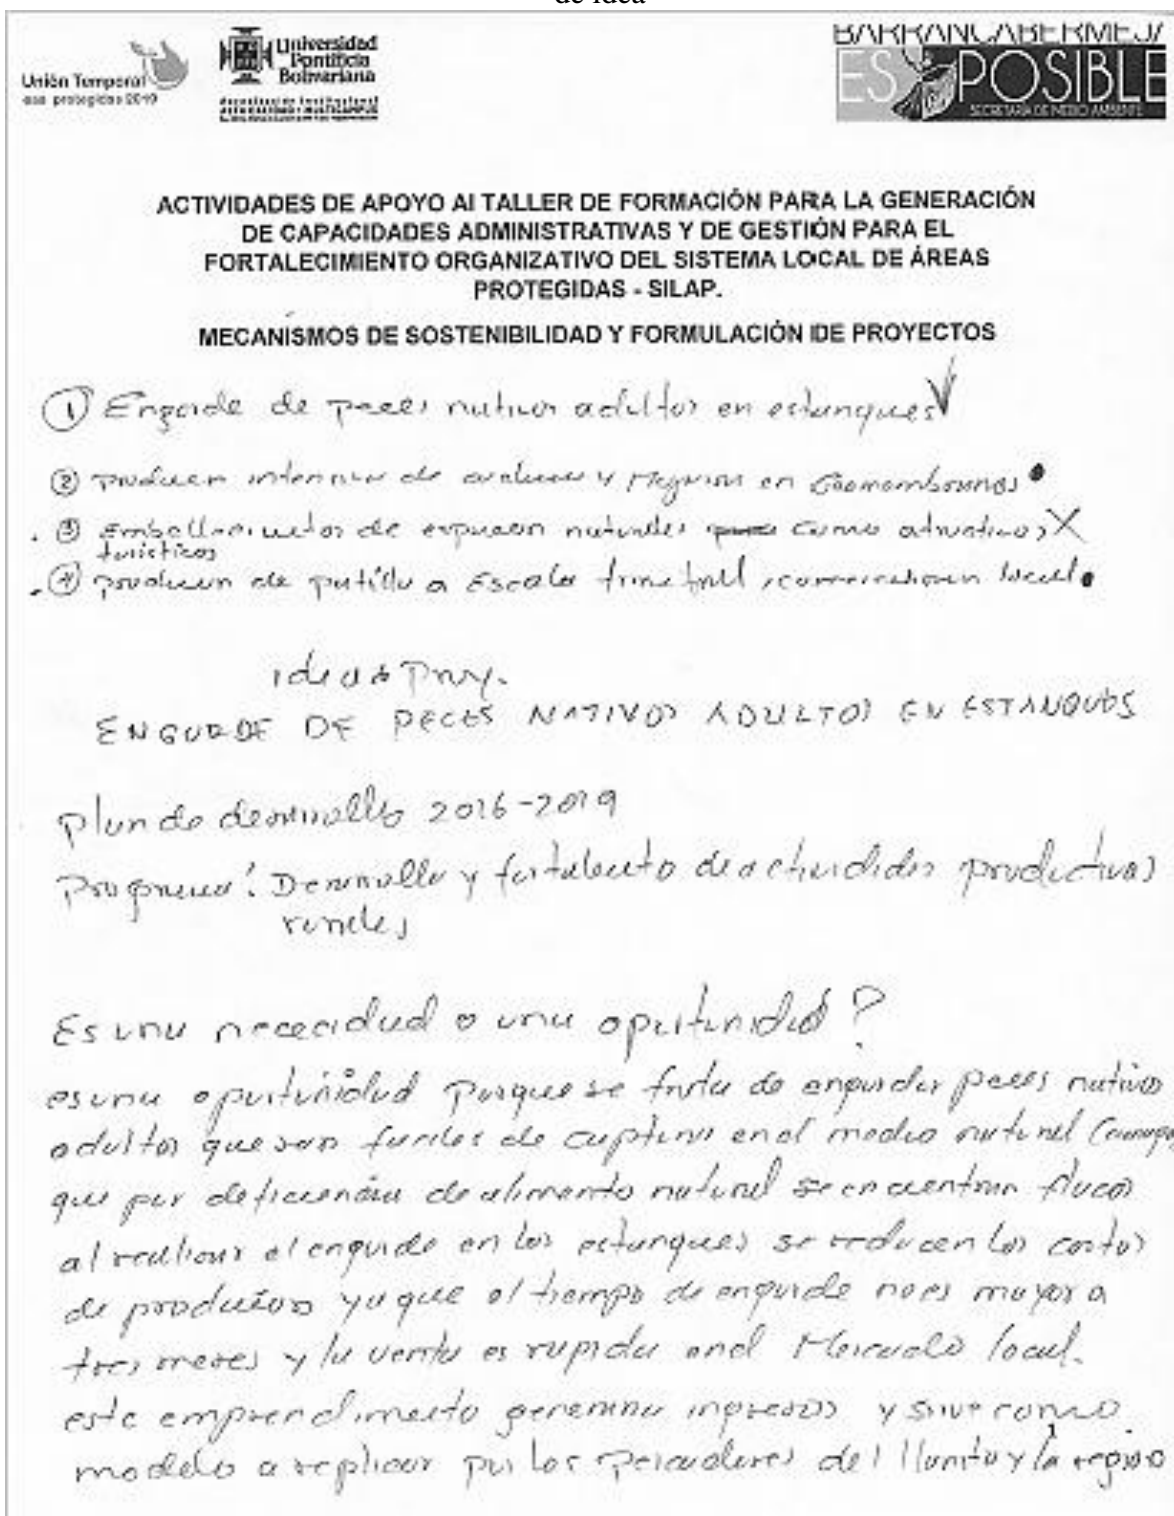 de idea
Unión Temporal
eas protegidas 2019
Universidad
Pontificia
Bolivariana
BARRANCABERMEJA
ES POSIBLE
SECRETARÍA DE MEDIO AMBIENTE
ACTIVIDADES DE APOYO Al TALLER DE FORMACIÓN PARA LA GENERACIÓN
DE CAPACIDADES ADMINISTRATIVAS Y DE GESTIÓN PARA EL
FORTALECIMIENTO ORGANIZATIVO DEL SISTEMA LOCAL DE ÁREAS
PROTEGIDAS - SILAP.
MECANISMOS DE SOSTENIBILIDAD Y FORMULACIÓN DE PROYECTOS
① Engorde de peces nativos adultos en estanques
② produccion intensiva de y en Geomembranas
③ Embellecimientos de espacios naturales como atractivos
turísticos
④ produccion de patilla a Escala local
idea de Proy.
ENGORDE DE PECES NATIVOS ADULTOS EN ESTANQUES
plan de desarrollo 2016-2019
Programa: Desarrollo y fortalecto de actividades productivas
rurales
Es una nececidad o una oportunidad?
es una oportunidad porque se trata de engordar peces nativos
adultos que son faciles de captura en el medio natural
que por deficiencia de alimento natural se encuentran flacos
al realizar el engorde en los estanques se reducen los costos
de produccion ya que el tiempo de engorde no es mayor a
tres meses y la venta es rapida en el Mercado local.
este emprendimiento genera ingresos y sirve como
modelo a replicar por los pescadores del llanito y la region